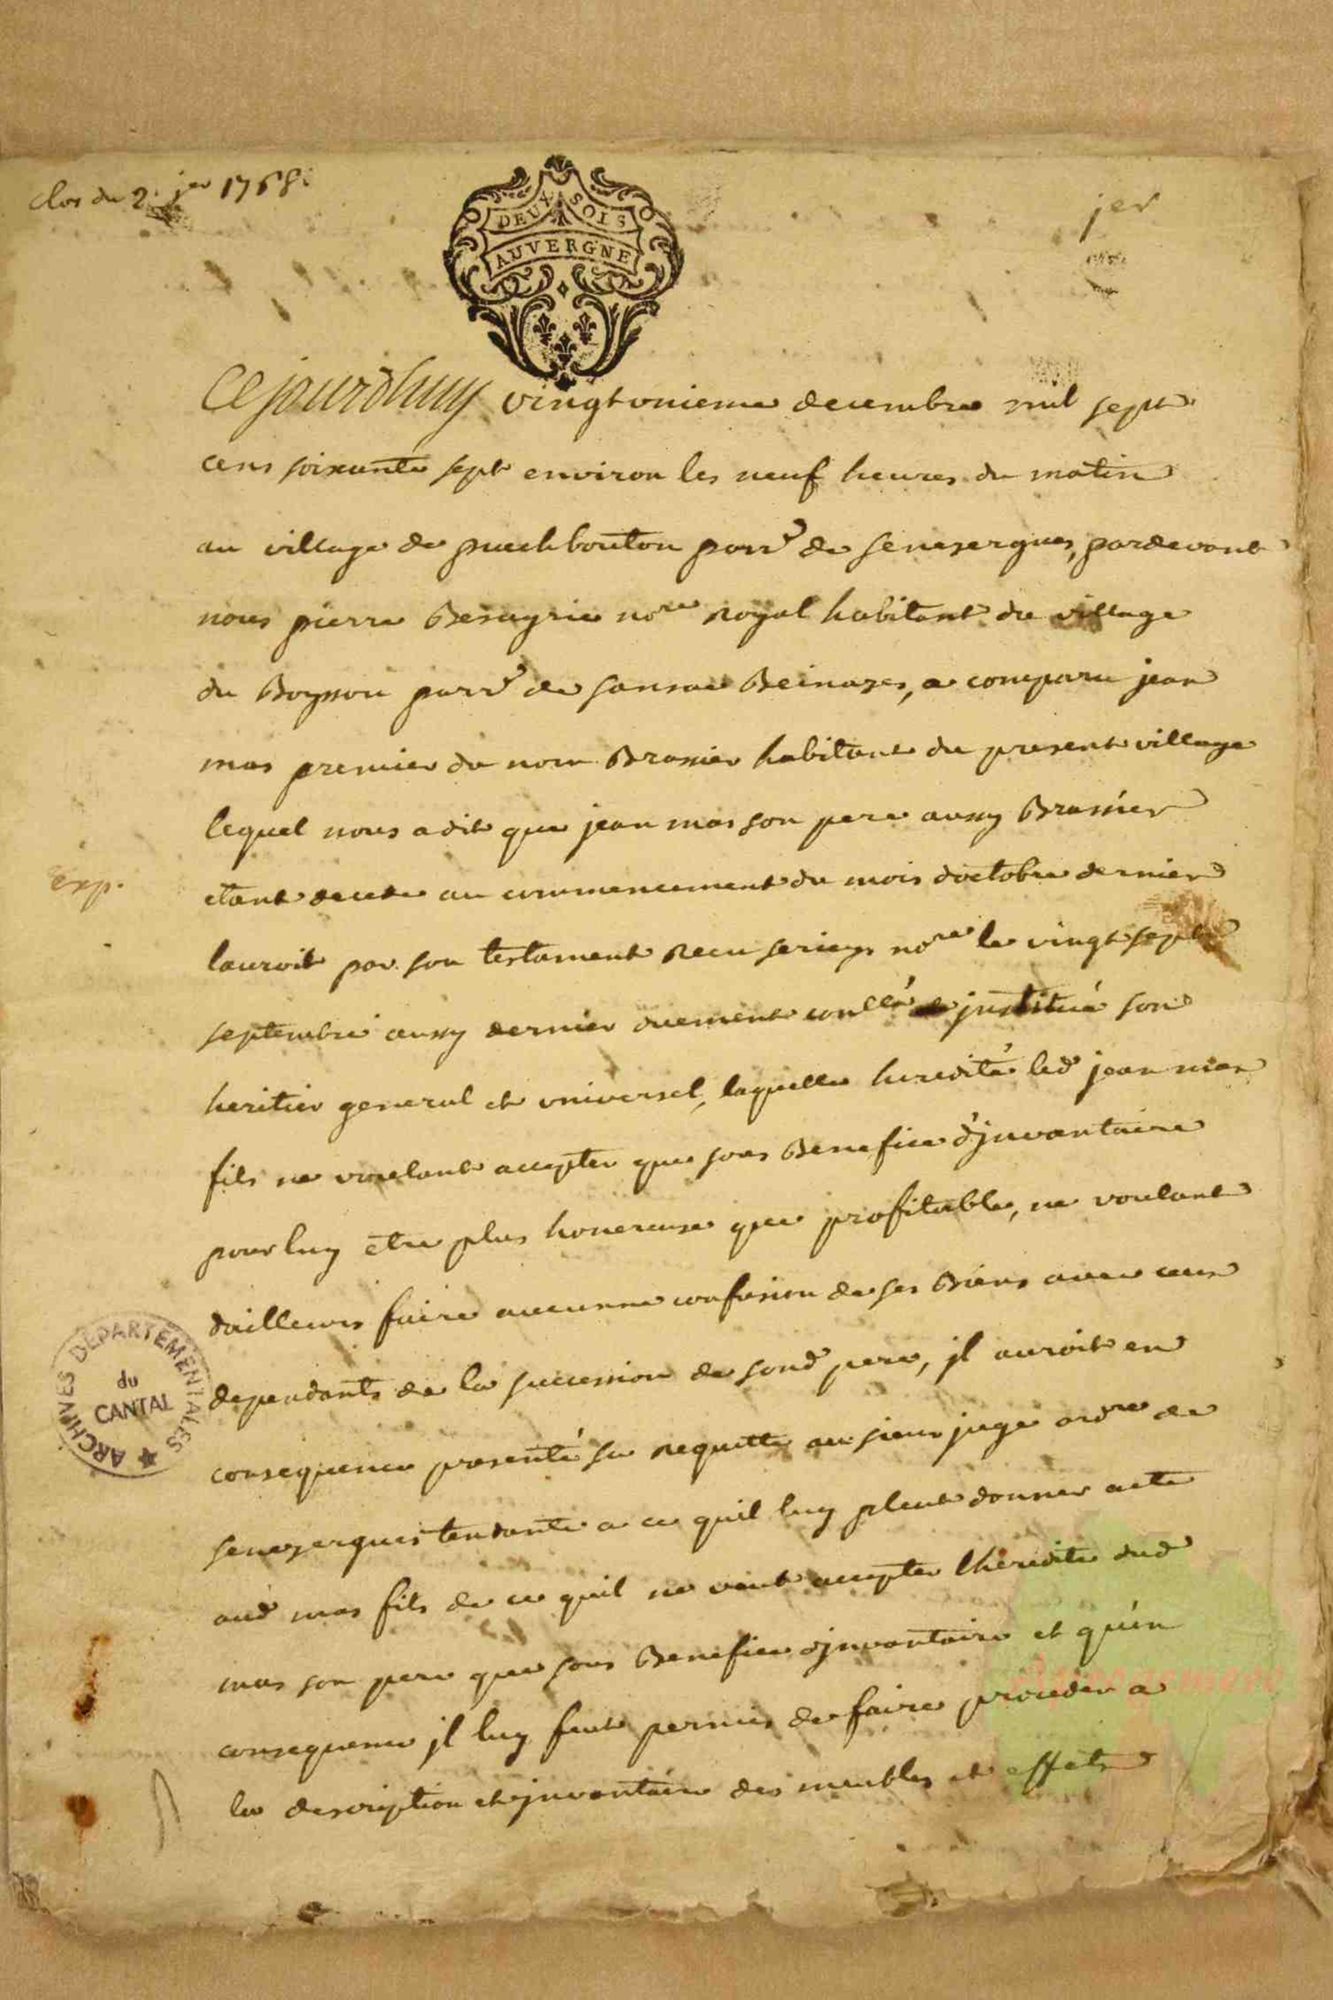 clos du 2. jer 1768.
DEUX SOLS
AUVERGNE
jer
Cejourdhuy vingtonieme decembre mil sept
cens soixante sept environ les neuf heures du matin
au village de puechbouton parr.e de senezergues, pardevant
nous pierre Besaygrie no.re Royal habitant du village
du Boysson parr.e de sansac Beinazes, a comparu jean
mas premier du nom Brassier habitant du present village
lequel nous a dit que jean mas son pere aussy Brassier
etant decede au commencement du mois doctobre dernier
lauroit par son testament Recu serieys no.re le vingt sept
septembre aussy dernier duement conllé institué son
heritier general et universel, laquelle heredité led. jean mas
fils ne voulant accepter que sous Benefice d'jnvantaire
pour luy etre plus honereuse que profitable, ne voulant
dailleurs faire aucunne confusion de ses Biens avec ceux
dependants de la succession de sond. pere, jl auroit en
consequence presenté sa Requette au sieur juge ord.re de
senezergues tendante a ce quil luy pleut donner acte
aud. mas fils de ce quil ne veut accepter lheredite dud.
mas son pere que sous Benefice d'jnvantaire et qu'en
consequence jl luy feut permis de faire proceder a
la description et jnvantaire des meubles et effets
Exp.
ARCHIVES DÉPARTEMENTALES
du
CANTAL